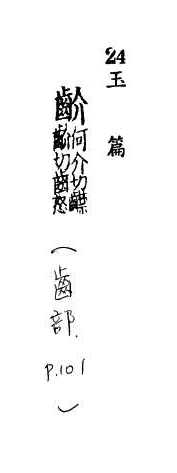 24
玉篇
齘
何介切
齘切齒怒
(齒部.
p.101)